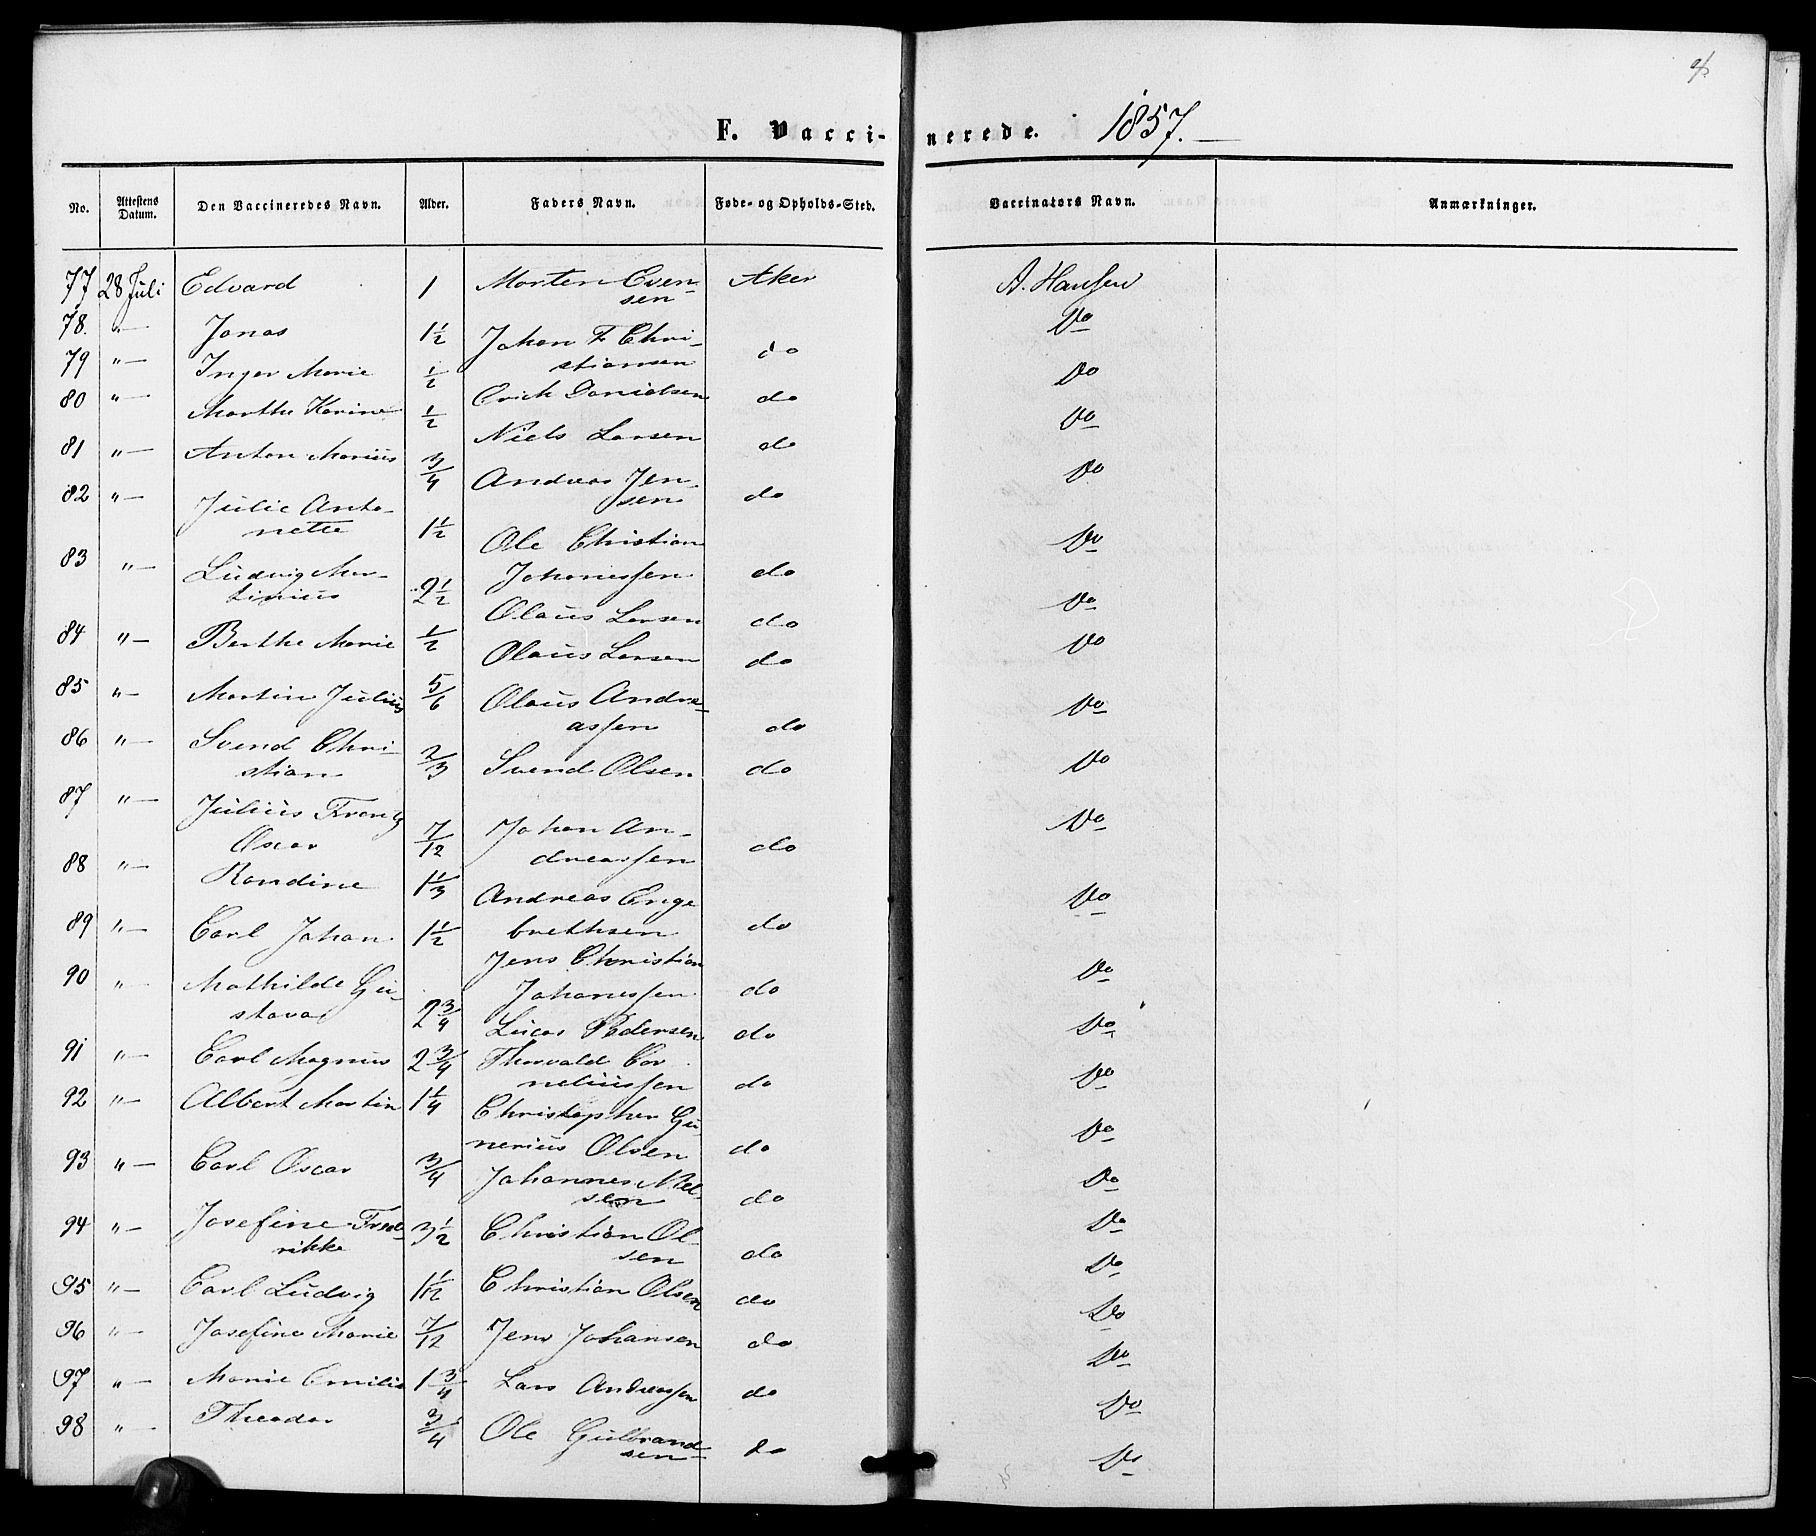 F. Vacci-nerede. 1857.
No. Attestens Datum. Den Vaccineredes Navn. Alder. Faders Navn. Føde- og Opholds-Sted. Vaccinators Navn. Anmærkninger.
77 28 Juli Edvard 1 Morten Even-sen Aker A. Hansen
78. "— Jonas 1½ Johan F Chri-stiansen do Do
79 "— Inger Marie ½ Erich Danielsen do Do
80 "— Marthe Karine ½ Niels Larsen do Do
81 "— Anton Marius ¾ Andreas Jen-sen do Do
82 "— Julie Anto-nette 1½ Ole Christian Johanessen do Do
83 "— Ludvig Mar-tinius 2½ Olaus Larsen do Do
84 "— Berthe Marie ½ Olaus Larsen do Do
85 "— Martin Julius 5/6 Olaus Andre-assen do Do
86 "— Svend Chri-stian 2/3 Svend Olsen do Do
87 "— Julius Frantz Oscar 7/12 Johan An-dreassen do Do
88 "— Randine 1⅓ Andreas Enge brethsen do Do
89 "— Carl Johan 1½ Jens Christian Johanessen do Do
90 "— Mathilde Gu-stava 2¾ Lucas Pedersen do Do
91 "— Carl Magnus 2¾ Thorvald Cor neliussen do Do
92 "— Albert Martin 1¼ Christopher Gu-nerius Olsen do Do
93 "— Carl Oscar ¾ Johannes Niel-sen do Do
94 "— Josefine Fred-rikke 3½ Christian Ol-sen do Do
95 "— Carl Ludvig 1½ Christian Olsen do Do
96 "— Josefine Marie 7/12 Jens Johansen do Do
97 "— Marie Emilie 1¾ Lars Andreassen do Do
98 "— Theodor ¾ Ole Gulbrand-sen do Do
Do